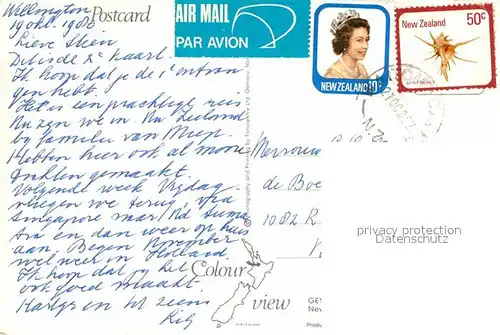 Wellington
19 okt. 1980
Postcard
AIR MAIL
PAR AVION
NEW ZEALAND 10c
New Zealand 50c
Lieve Stien
Dit is de 2e kaart.
Ik hoop dat je de 1e ontvan
gen hebt.
Het is een prachtige reis
Nu zen we in Nu Zeeland
by familie van Miep.
Hebben hier ook al mooie
makten gemaakt.
Volgende week Vrijdag
vliegen we terug, via
Singapore naar Nd Suma
tra en dan weer op huis
aan. Begin November
wel weer in Holland.
Ik hoop dat jy het
ook goed maakt.
Hartgr en tot ziens
Mevrouw
de Boe
1082 R
privacy protection
Datenschutz
Colour
view
NEW ZEALAND
GE
New
Produ